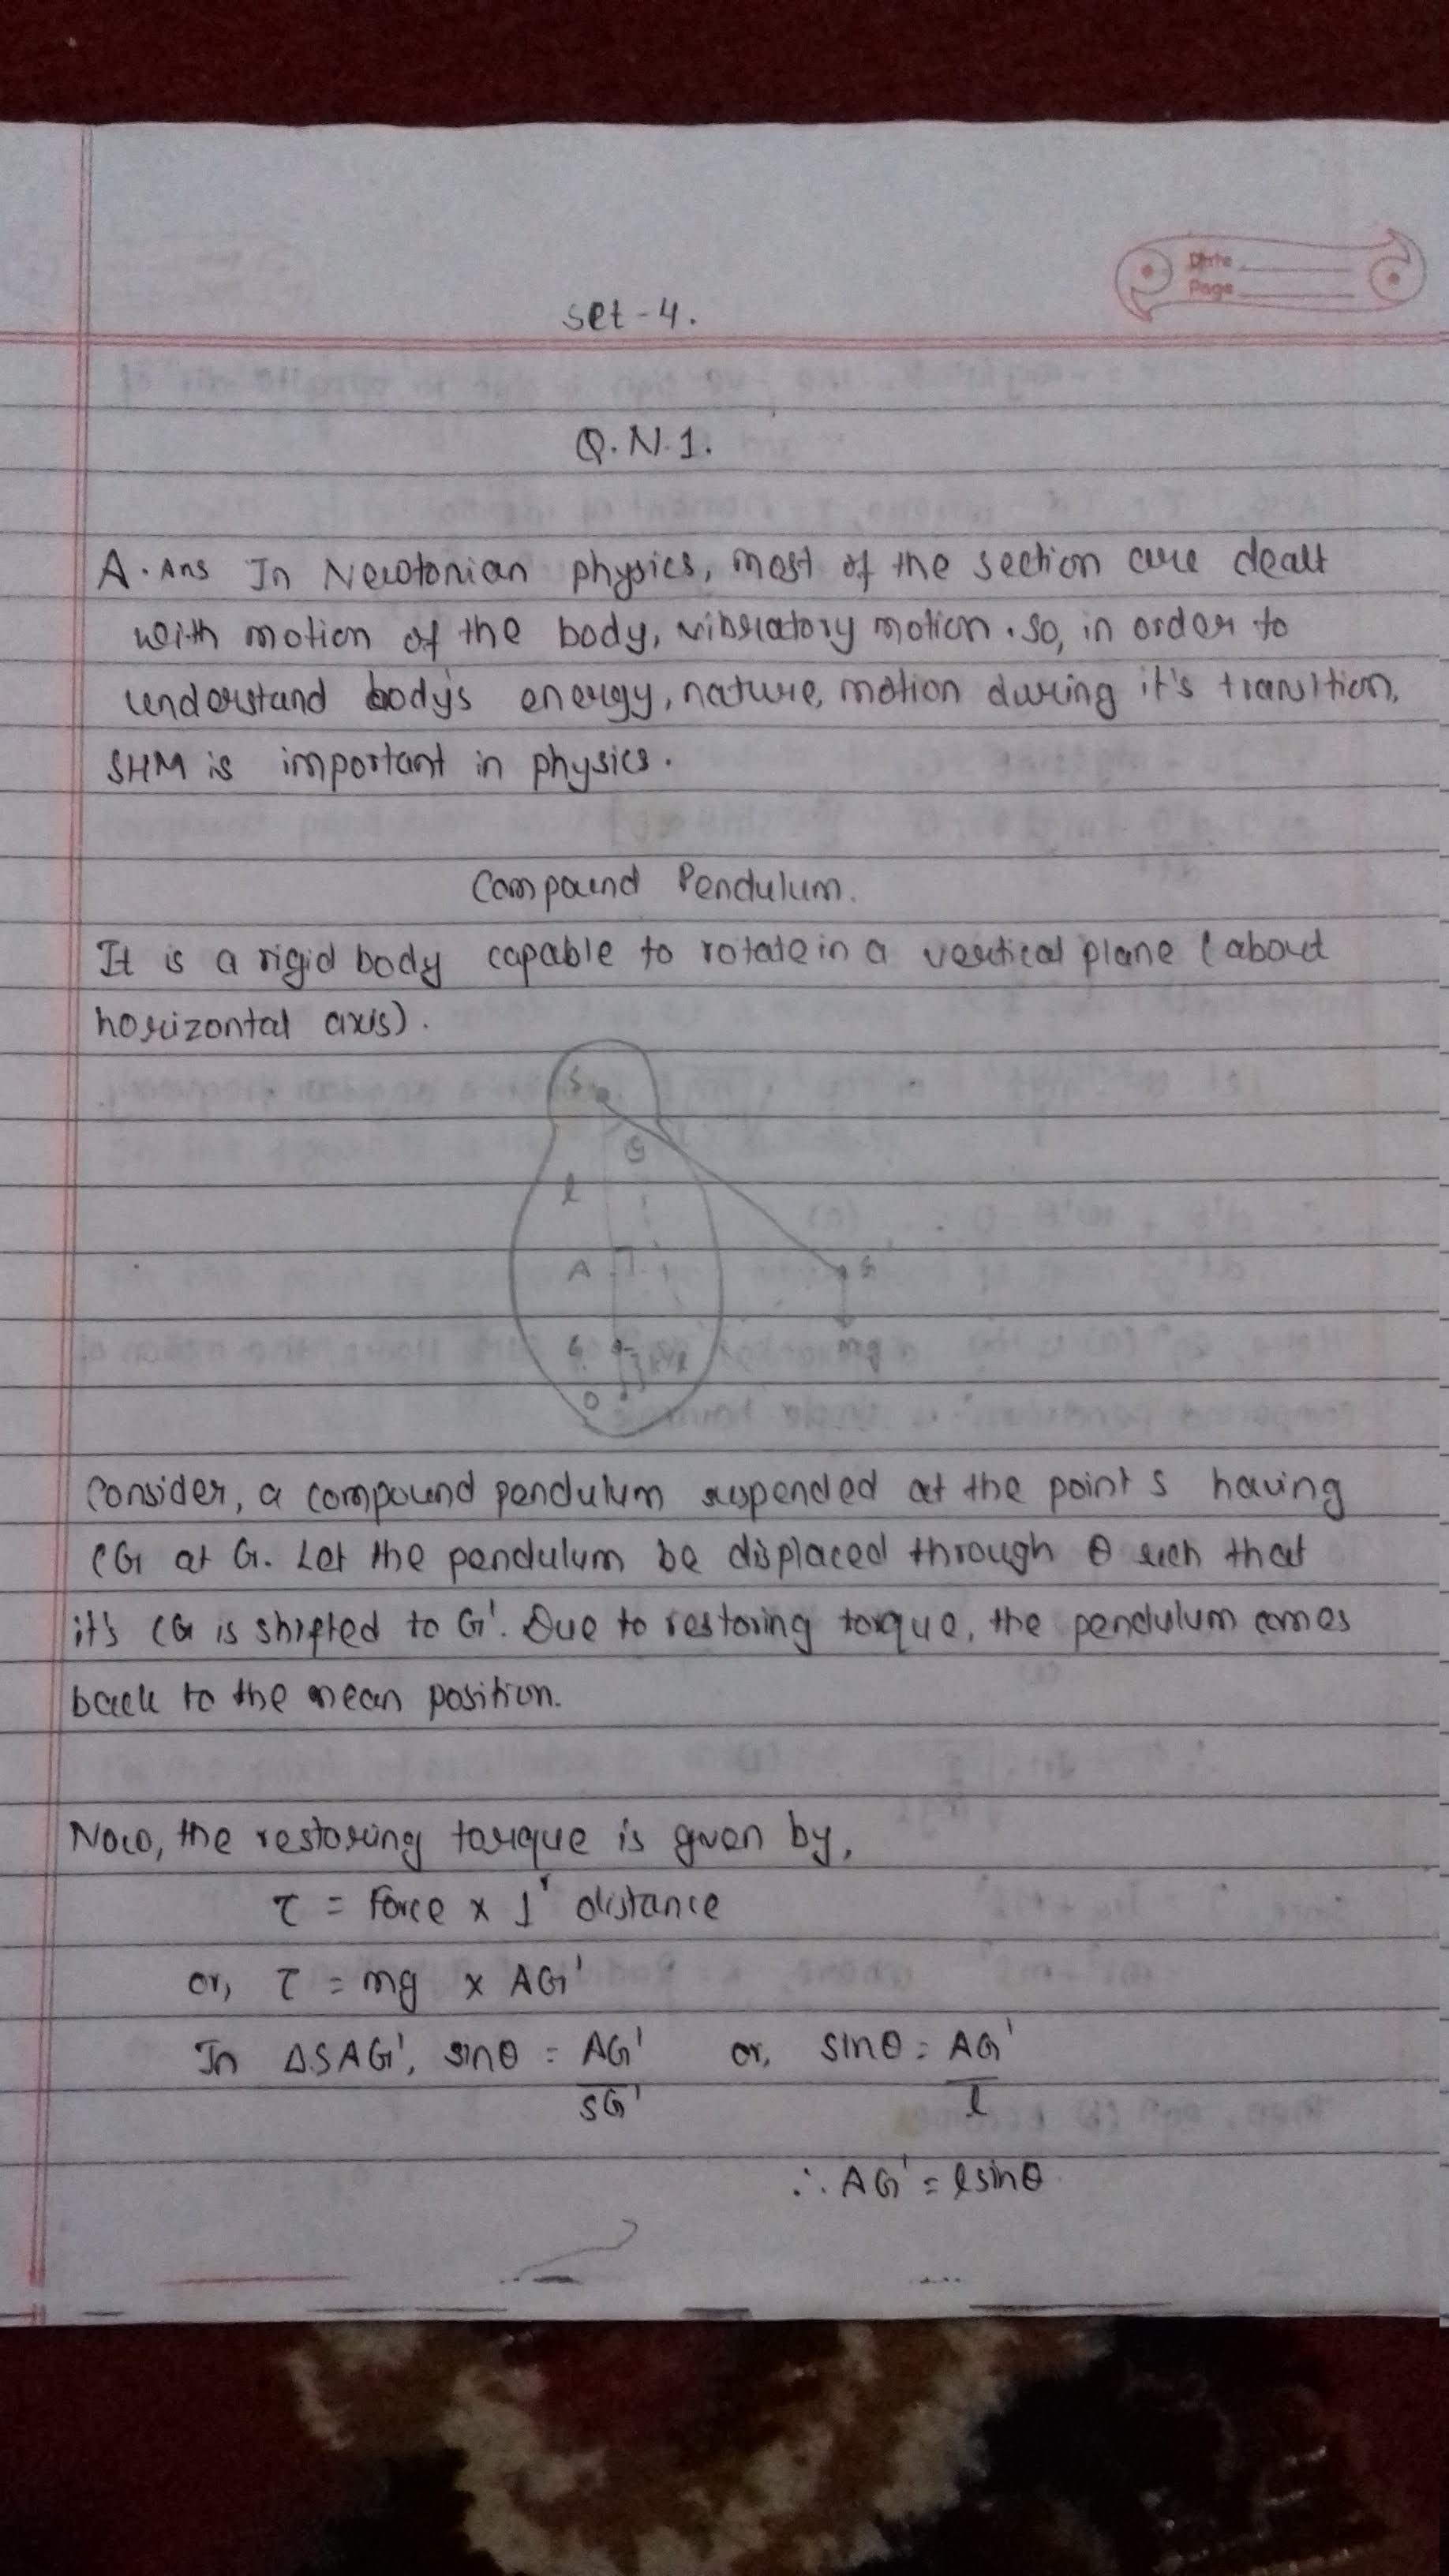 Date
Page
Set-4.
Q.N.1.
A. Ans In Newtonian physics, most of the section are dealt
with motion of the body, vibratory motion. So, in order to
understand body's energy, nature, motion during it's transition,
SHM is important in physics.
Compound Pendulum.
It is a rigid body capable to rotate in a vertical plane (about
horizontal axis).
S
θ
l
A
G'
G
mg
O
Consider, a compound pendulum suspended at the point S having
CG at G. Let the pendulum be displaced through θ such that
it's CG is shifted to G'. Due to restoring torque, the pendulum comes
back to the mean position.
Now, the restoring torque is given by,
τ = Force × ⊥r distance
or, τ = mg × AG'
In ΔSAG', sinθ = AG'/SG' or, sinθ = AG'/l
∴ AG' = lsinθ